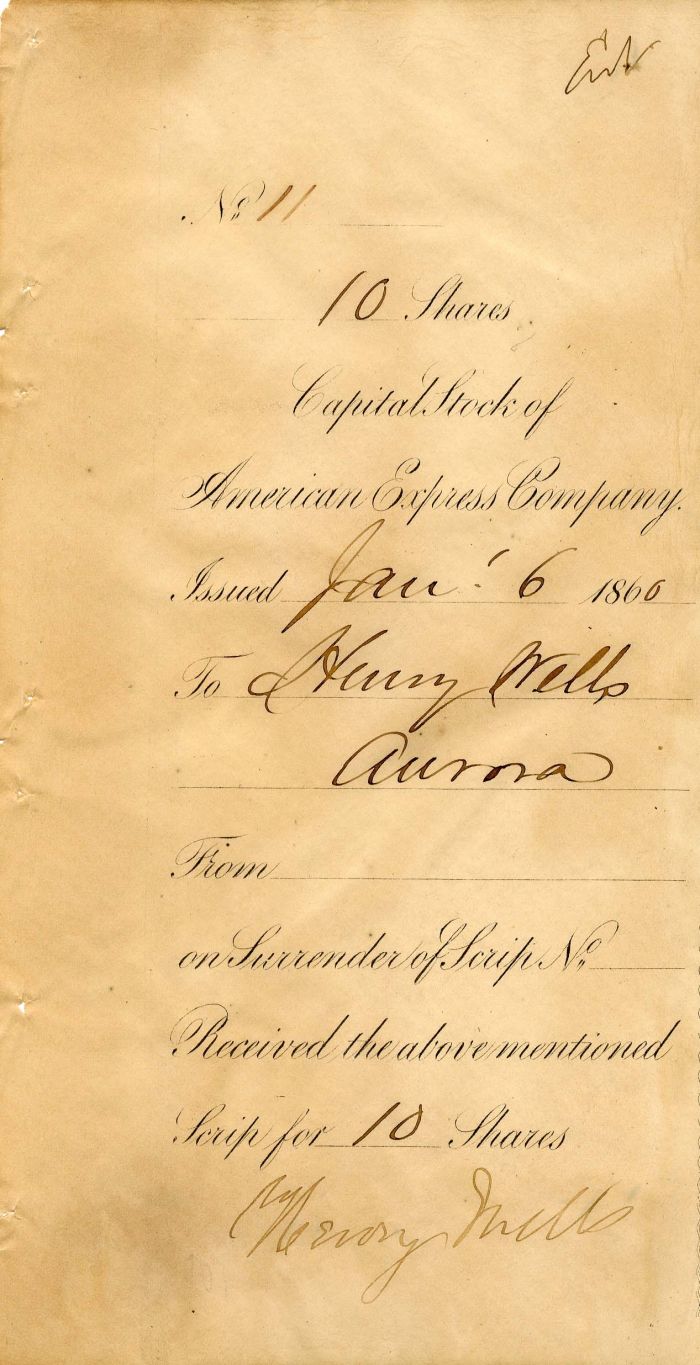 Ent
No 11
10 Shares
Capital Stock of
American Express Company.
Issued Jany 6 1860
To Henry Wells
Aurora
From
on Surrender of Scrip No
Received the above mentioned
Scrip for 10 Shares
Henry Wells